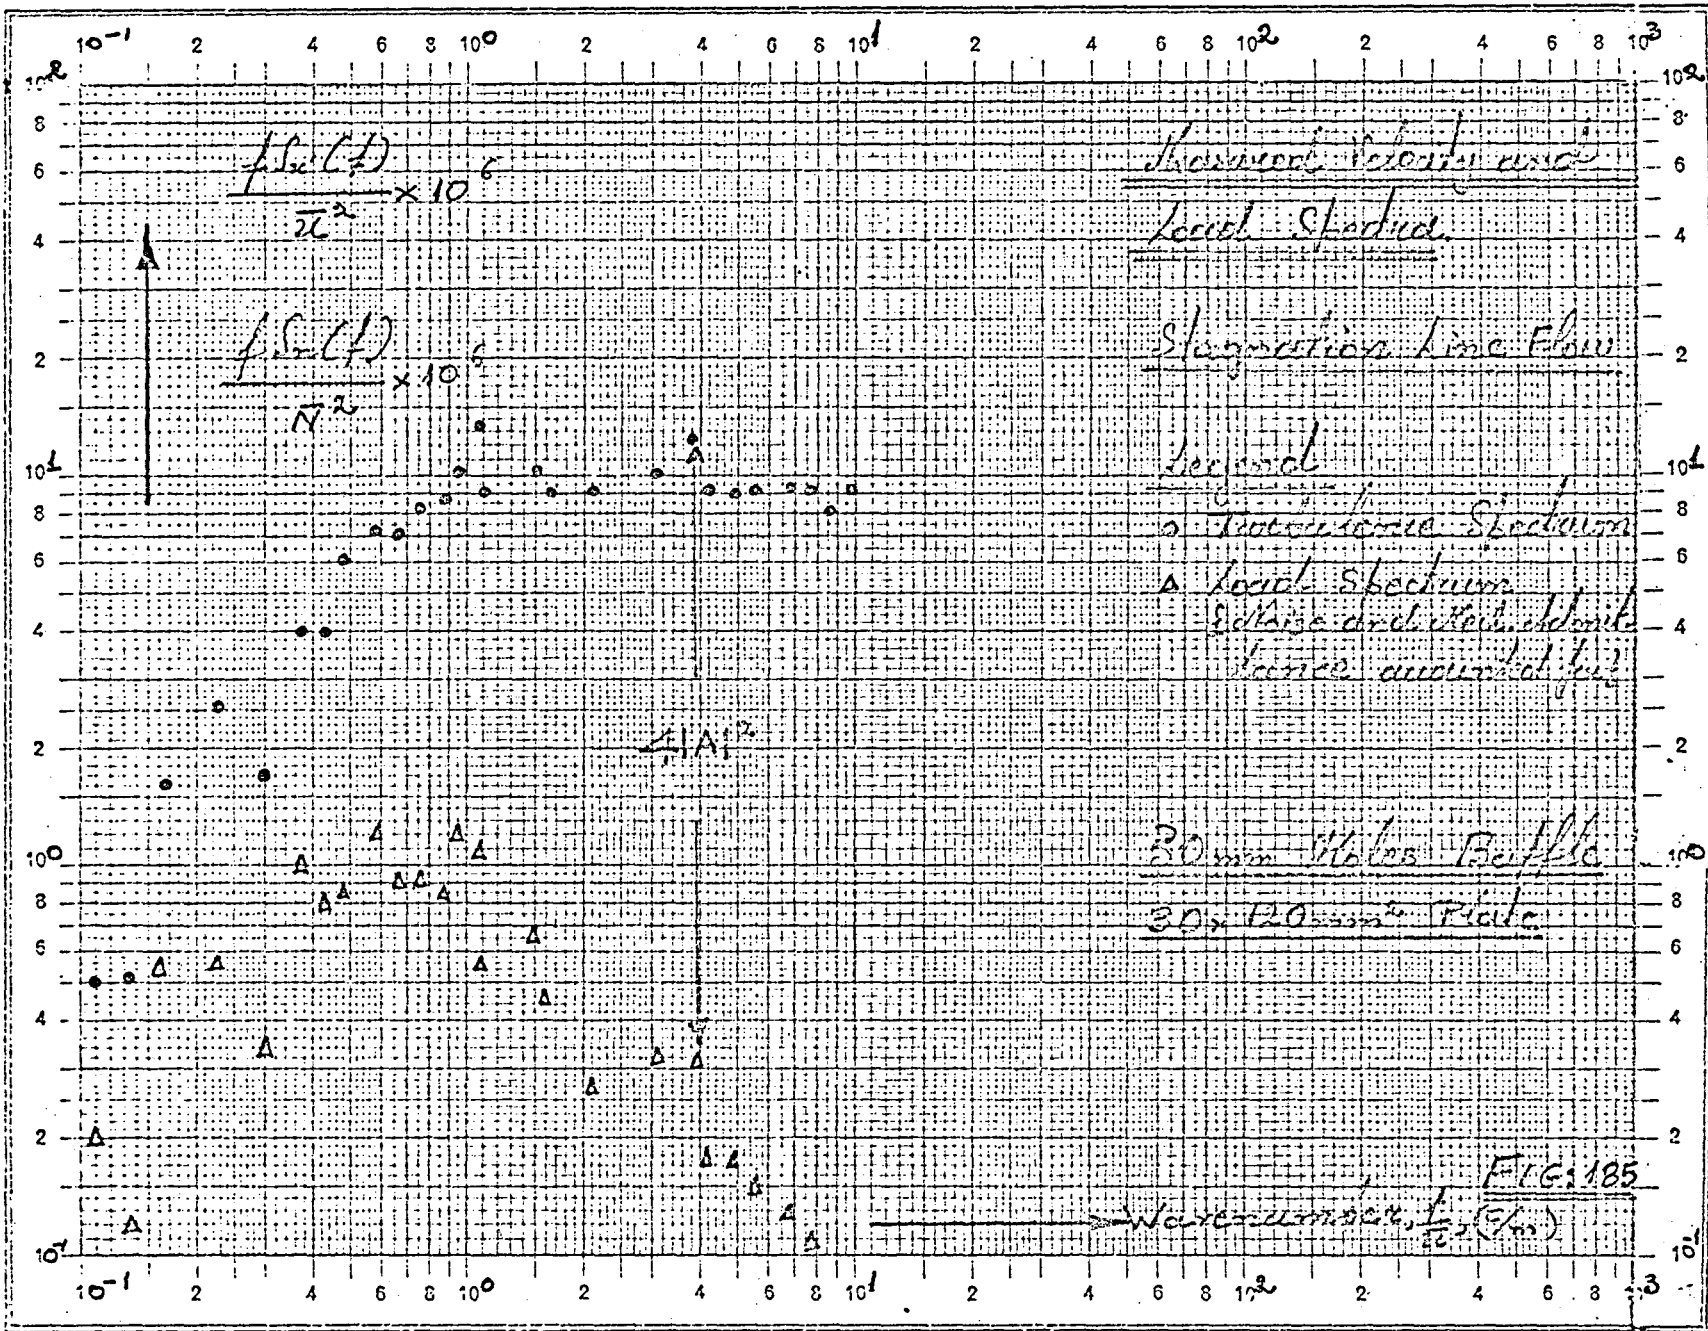 10-1 2 4 6 8 100 2 4 6 8 101 2 4 6 8 102 2 4 6 8 103
102
8
6
4
2
101
8
6
4
2
100
8
6
4
2
10-1
f Sx(f) × 10 6
ū 2
f Sn(f) × 10 6
N̄ 2
4|A|2
Velocity and
Load Spectra
Stagnation Line Flow
Legend
o Turbulence Spectrum
Δ Load Spectrum
lance accounted for
30mm Holes Baffle
30 x 120 mm2 Plate
FIG:185
Wavenumber, f/ū, (c/m)
102
8
6
4
2
101
8
6
4
2
100
8
6
4
2
101
10-1 2 4 6 8 100 2 4 6 8 101 2 4 6 8 102 2 4 6 8 103